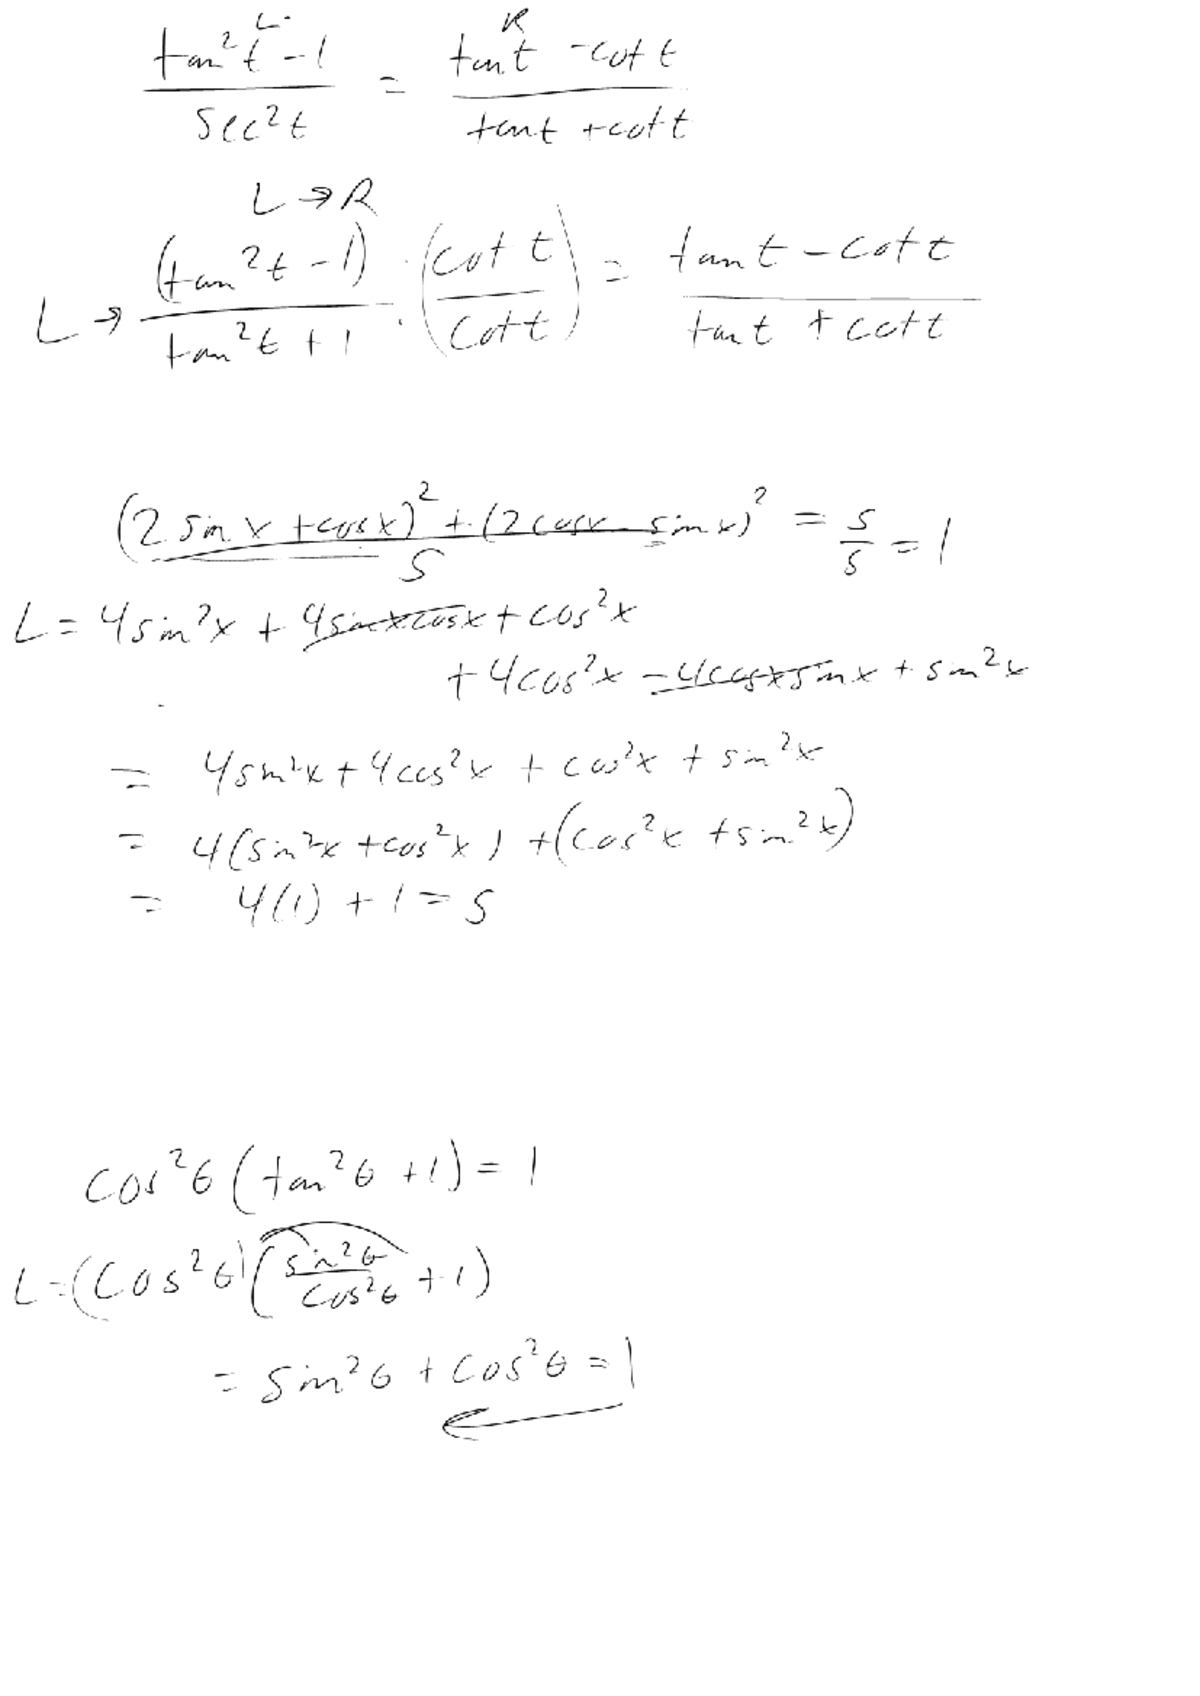 L. R
tan²t - 1 / sec²t = tant - cot t / tant + cot t
L → R
L → (tan²t - 1) / tan²t + 1 · (cot t / cot t) = tan t - cot t / tan t + cot t
(2 sin x + cos x)² + (2 cos x - sin x)² / 5 = 5/5 = 1
L = 4 sin²x + 4 sin x cos x + cos²x
+ 4 cos²x - 4 cos x sin x + sin²x
= 4 sin²x + 4 cos²x + cos²x + sin²x
= 4(sin²x + cos²x) + (cos²x + sin²x)
= 4(1) + 1 = 5
cos²θ (tan²θ + 1) = 1
L = (cos²θ)(sin²θ / cos²θ + 1)
= sin²θ + cos²θ = 1